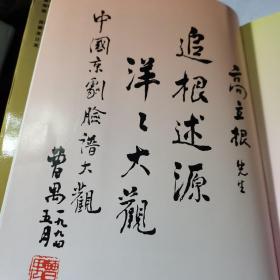 高立根先生
追根述源
洋〻大觀
中國京劇臉譜大觀
曹禺一九九四
五月